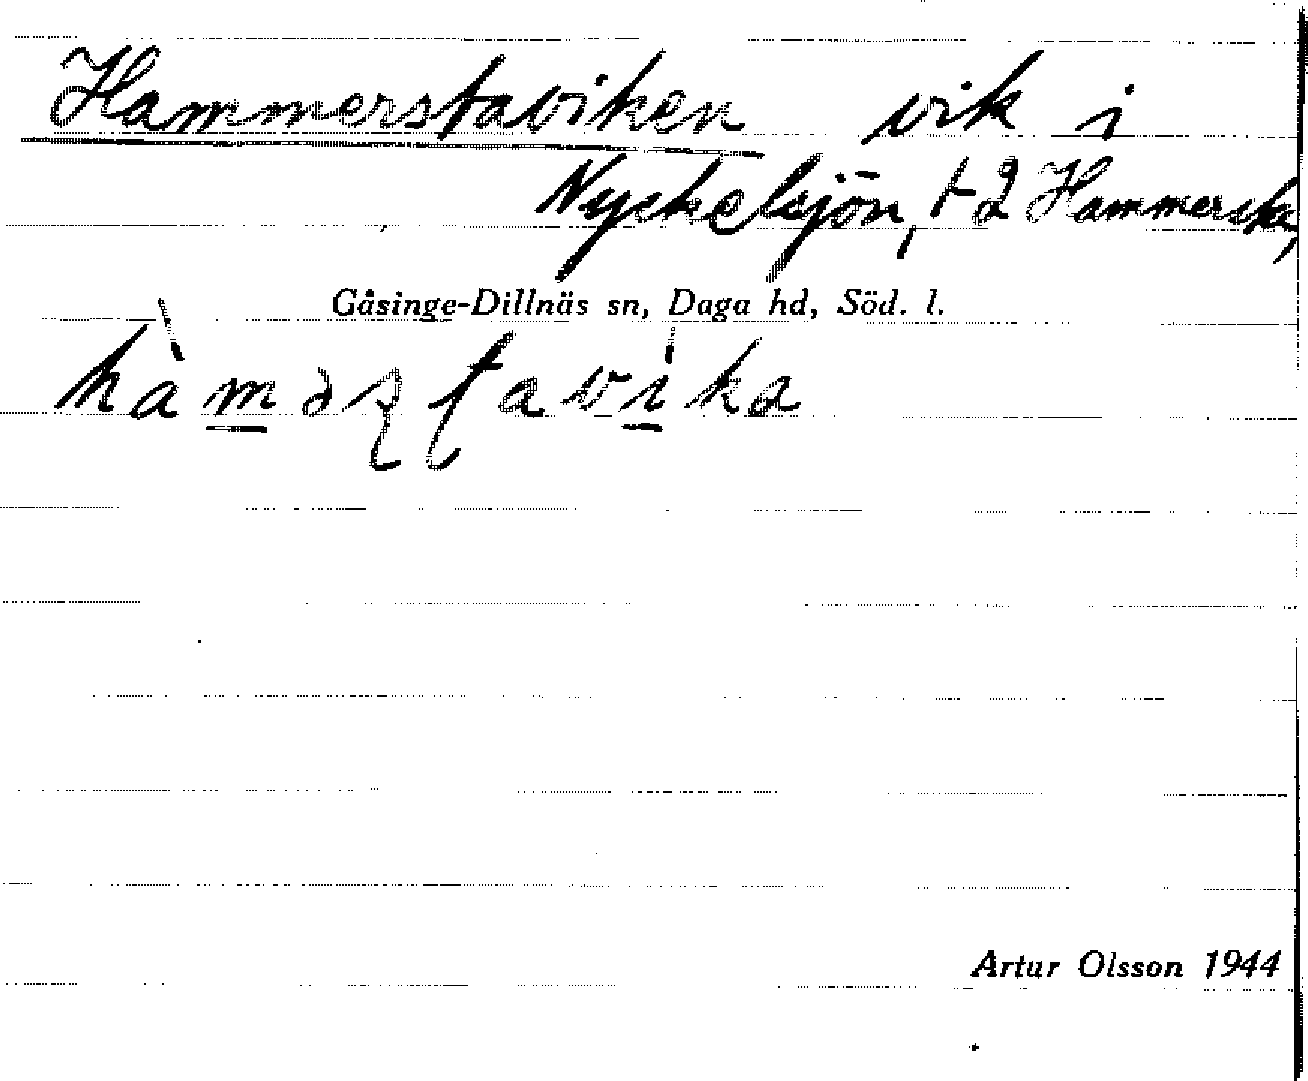 Hammerstaviken vik i
Nyckelsjön, t 2 Hammersta,
Gåsinge-Dillnäs sn, Daga hd, Söd. l.
Artur Olsson 1944